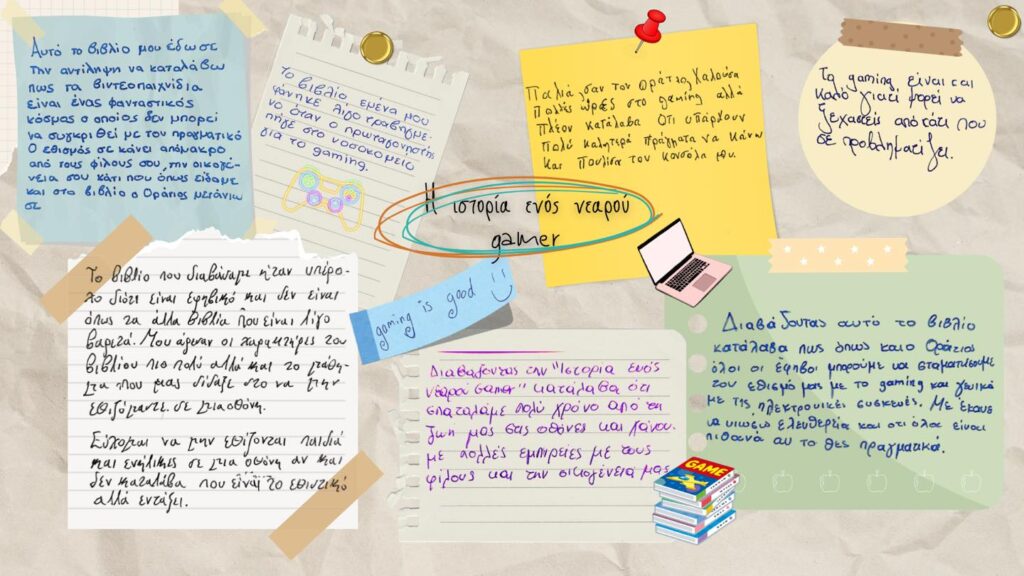 Αυτό το βιβλίο μου έδωσε
την αντίληψη να καταλάβω
πως τα βιντεοπαιχνίδια
είναι ένας φανταστικός
κόσμος ο οποίος δεν μπορεί
να συγκριθεί με τον πραγματικό
Ο εθισμός σε κάνει απόμακρο
από τους φίλους σου, την οικογέ-
νεια σου κάτι που όπως είδαμε
και στο βιβλίο ο Οράτιος μετάνιω
σε
το βιβλίο εμένα μου
φάνηκε λίγο τραβηγμέ-
νο όταν ο πρωταγωνιστής
πήγε στο νοσοκομείο
για το gaming.
Παλιά σαν τον Οράτιο χαλούσα
πολλές ώρες στο gaming αλλά
πλέον κατάλαβα ότι υπάρχουν
πολύ καλητερά πράγματα να κάνω
και πούλησα τον κονσόλα μου
Το gaming είναι και
καλό γιατί μπορεί να
ξεχαστείς από κάτι που
σε προβληματίζει.
Η ιστορία ενός νεαρού
gamer
gaming is good !!
Το βιβλίο που διαβάσαμε ήταν υπέρο-
χο διότι είναι εφηβικό και δεν είναι
όπως τα άλλα βιβλία που είναι λίγο
βαρετά. Μου άρεσαν οι χαρακτήρες του
βιβλίου πιο πολύ αλλά και το μάθη-
μα που μας δίδαξε στο να μην
εθιζόμαστε σε μια οθόνη.
Εύχομαι να μην εθίζονται παιδιά
και ενήλικες σε μια οθόνη αν και
δεν κατάλαβα που είναι το εθιστικό
αλλά εντάξει.
Διαβάζοντας την "Ιστορία ενός
νεαρού Gamer" κατάλαβα ότι
σπαταλάμε πολύ χρόνο από τη
ζωή μας στις οθόνες και χάνου-
με πολλές εμπειρίες με τους
φίλους και την οικογένειά μας
Διαβάζοντας αυτό το βιβλίο
κατάλαβα πως όπως και ο Οράτιος
όλοι οι έφηβοι μπορούμε να σταματήσουμε
τον εθισμό μας με το gaming και γενικά
με τις ηλεκτρονικές συσκευές. Με έκανε
να νιώσω ελευθερία και ότι όλα είναι
πιθανά αν το θες πραγματικά.
GAME
X